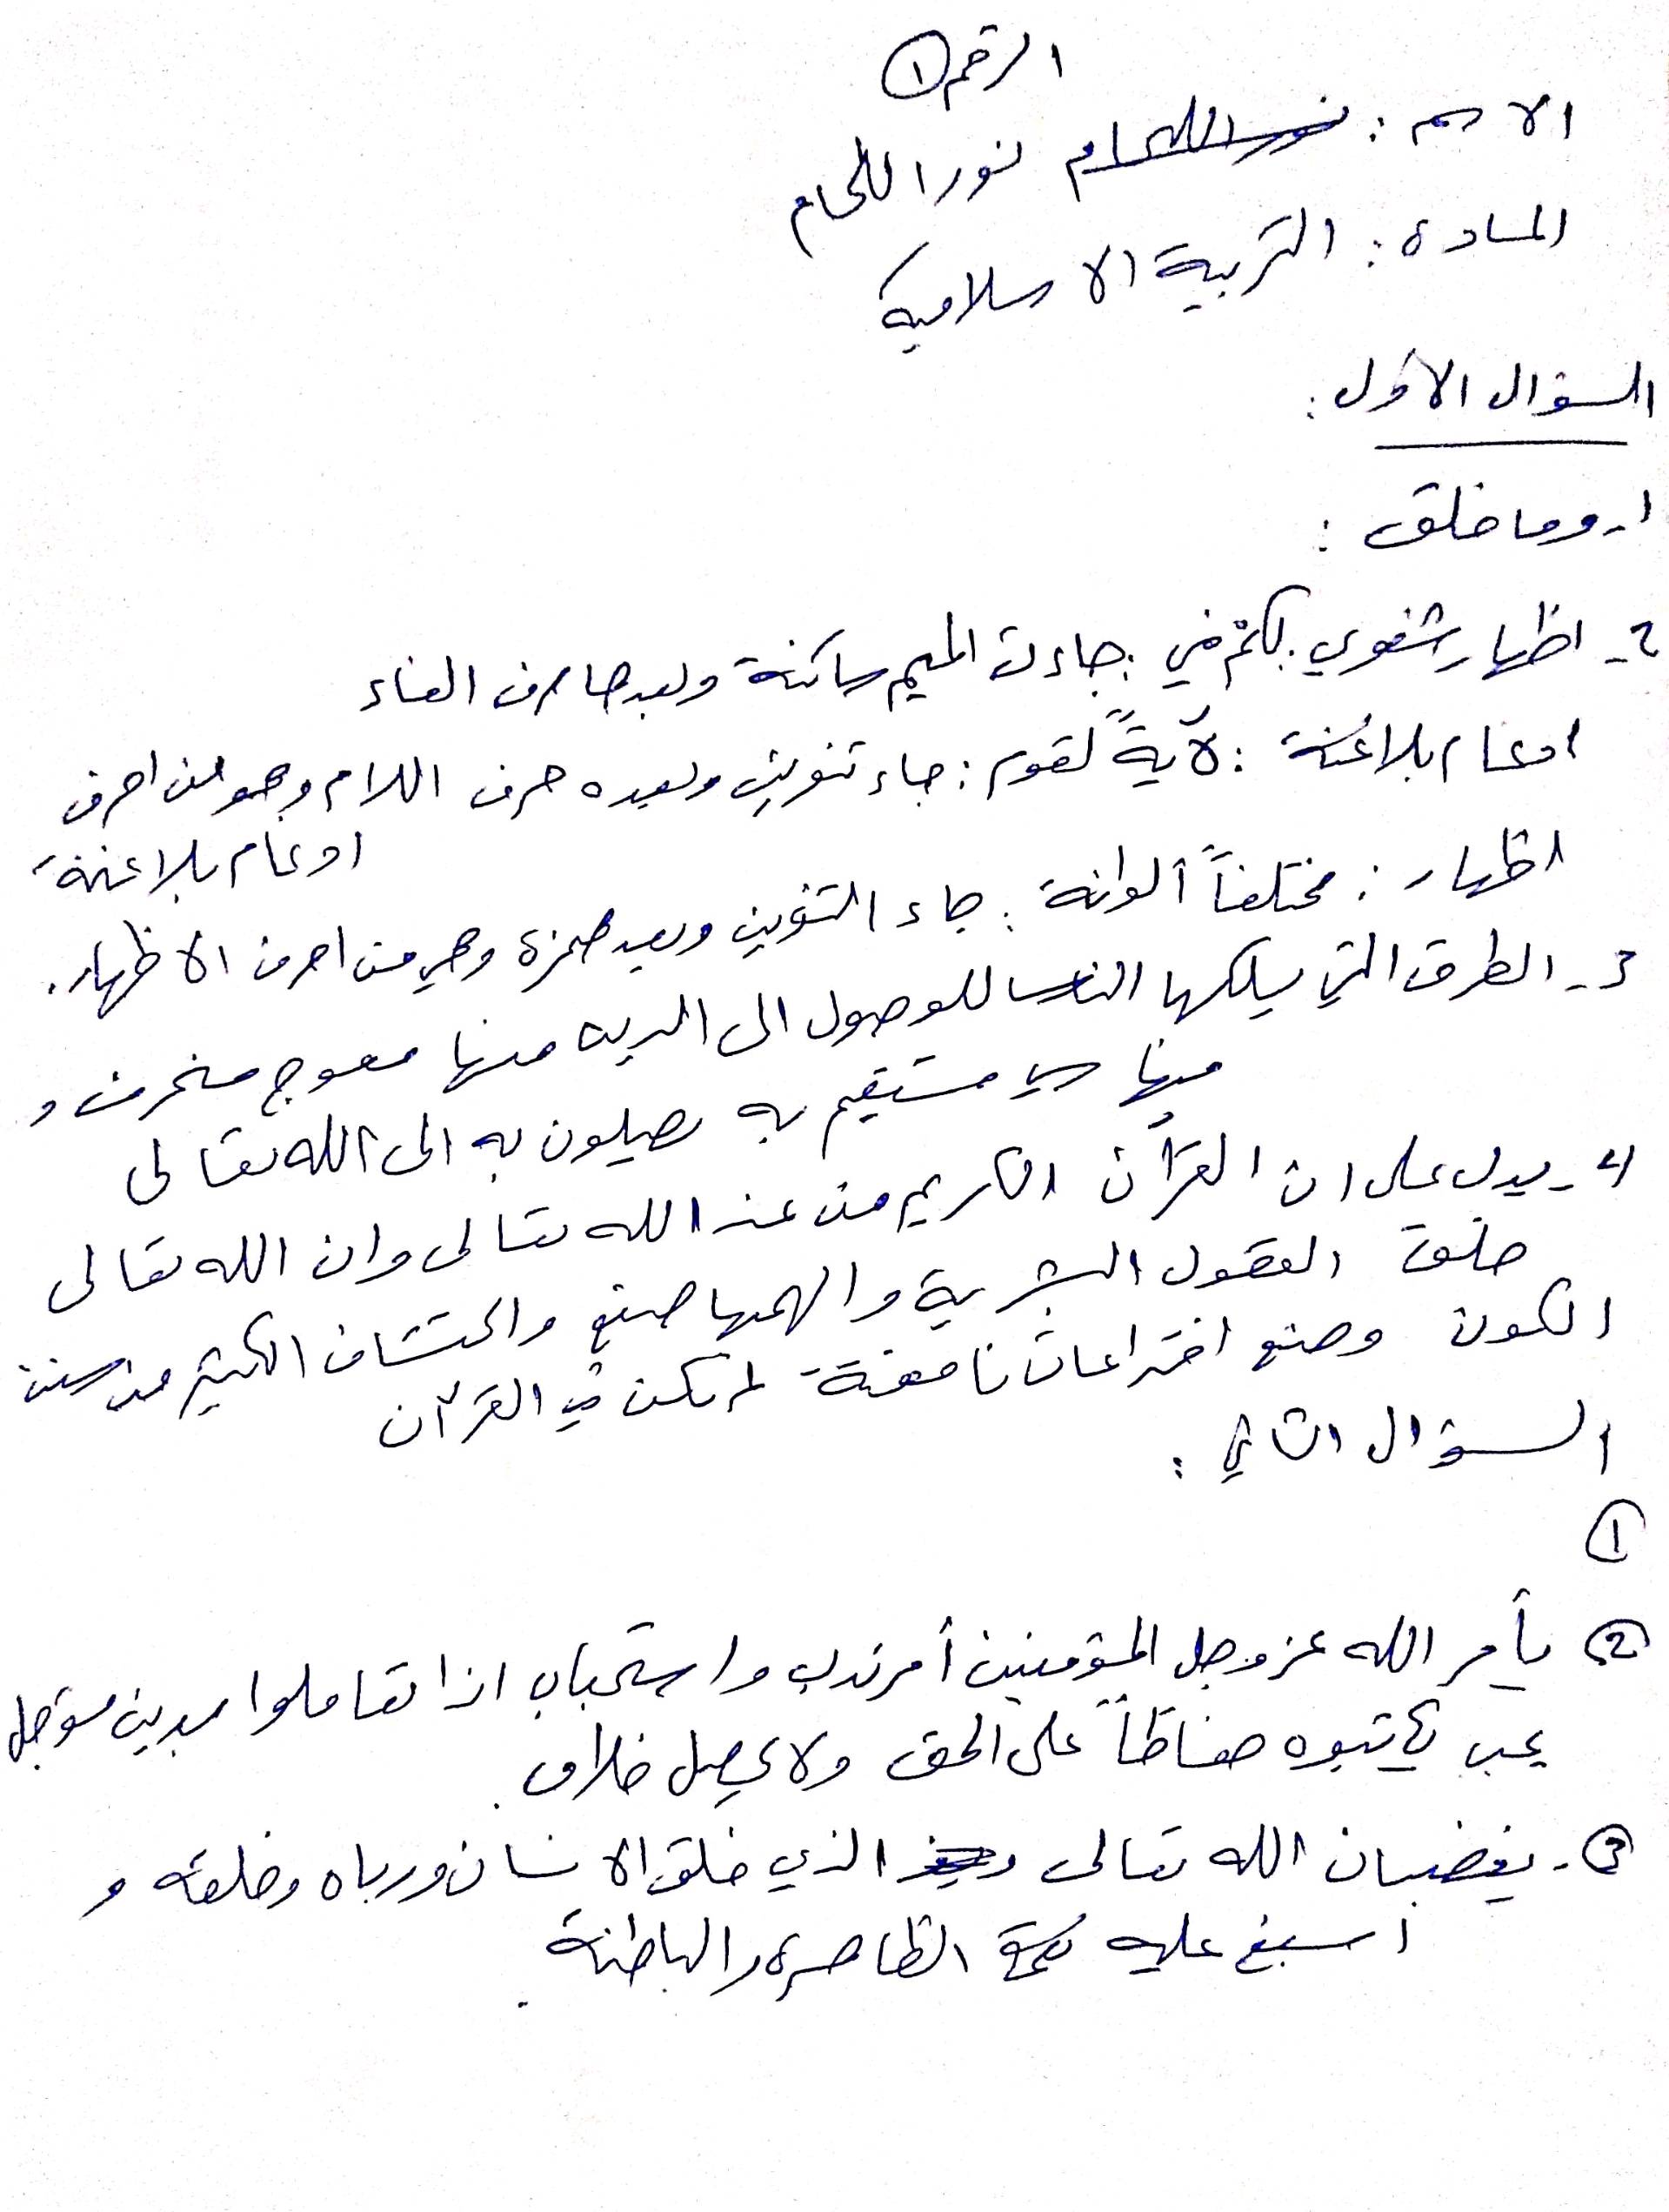 الرقم ①
الاسم : نور اللحام نور اللحام
المادة : التربية الاسلامية
السؤال الأول :
١- وما خلق :
٢- اظهار شفوي : لكم في : جاءت الميم ساكنة وبعدها حرف الفاء
ادغام بلا غنة : لآيةً لقوم : جاء تنوين وبعده حرف اللام وهو من احرف
ادغام بلا غنة
اظهار : مختلفاً ألوانه : جاء التنوين وبعد همزة وهي من احرف الاظهار .
٣- الطرق التي يسلكها الناس للوصول الى الدين منها معوج منحرف و
منها مستقيم به يصلون به الى الله تعالى
٤- يدل على ان القرآن الكريم من عند الله تعالى وان الله تعالى
خلق العقول البشرية والهمها صنع واكتشاف الكثير من سنن
الكون وصنع اختراعات نافعة لم تكن في القرآن
السؤال الثاني :
①
② يأمر الله عز وجل المؤمنين أمر ندب واستحباب اذا تعاملوا بدين مؤجل
يجب كاتبوه حفاظاً على الحق ولا يحصل خلاف .
③- يغضبان الله تعالى الذي خلق الانسان ورباه وخلقه و
اسبغ عليه نعمة الظاهرة والباطنة .